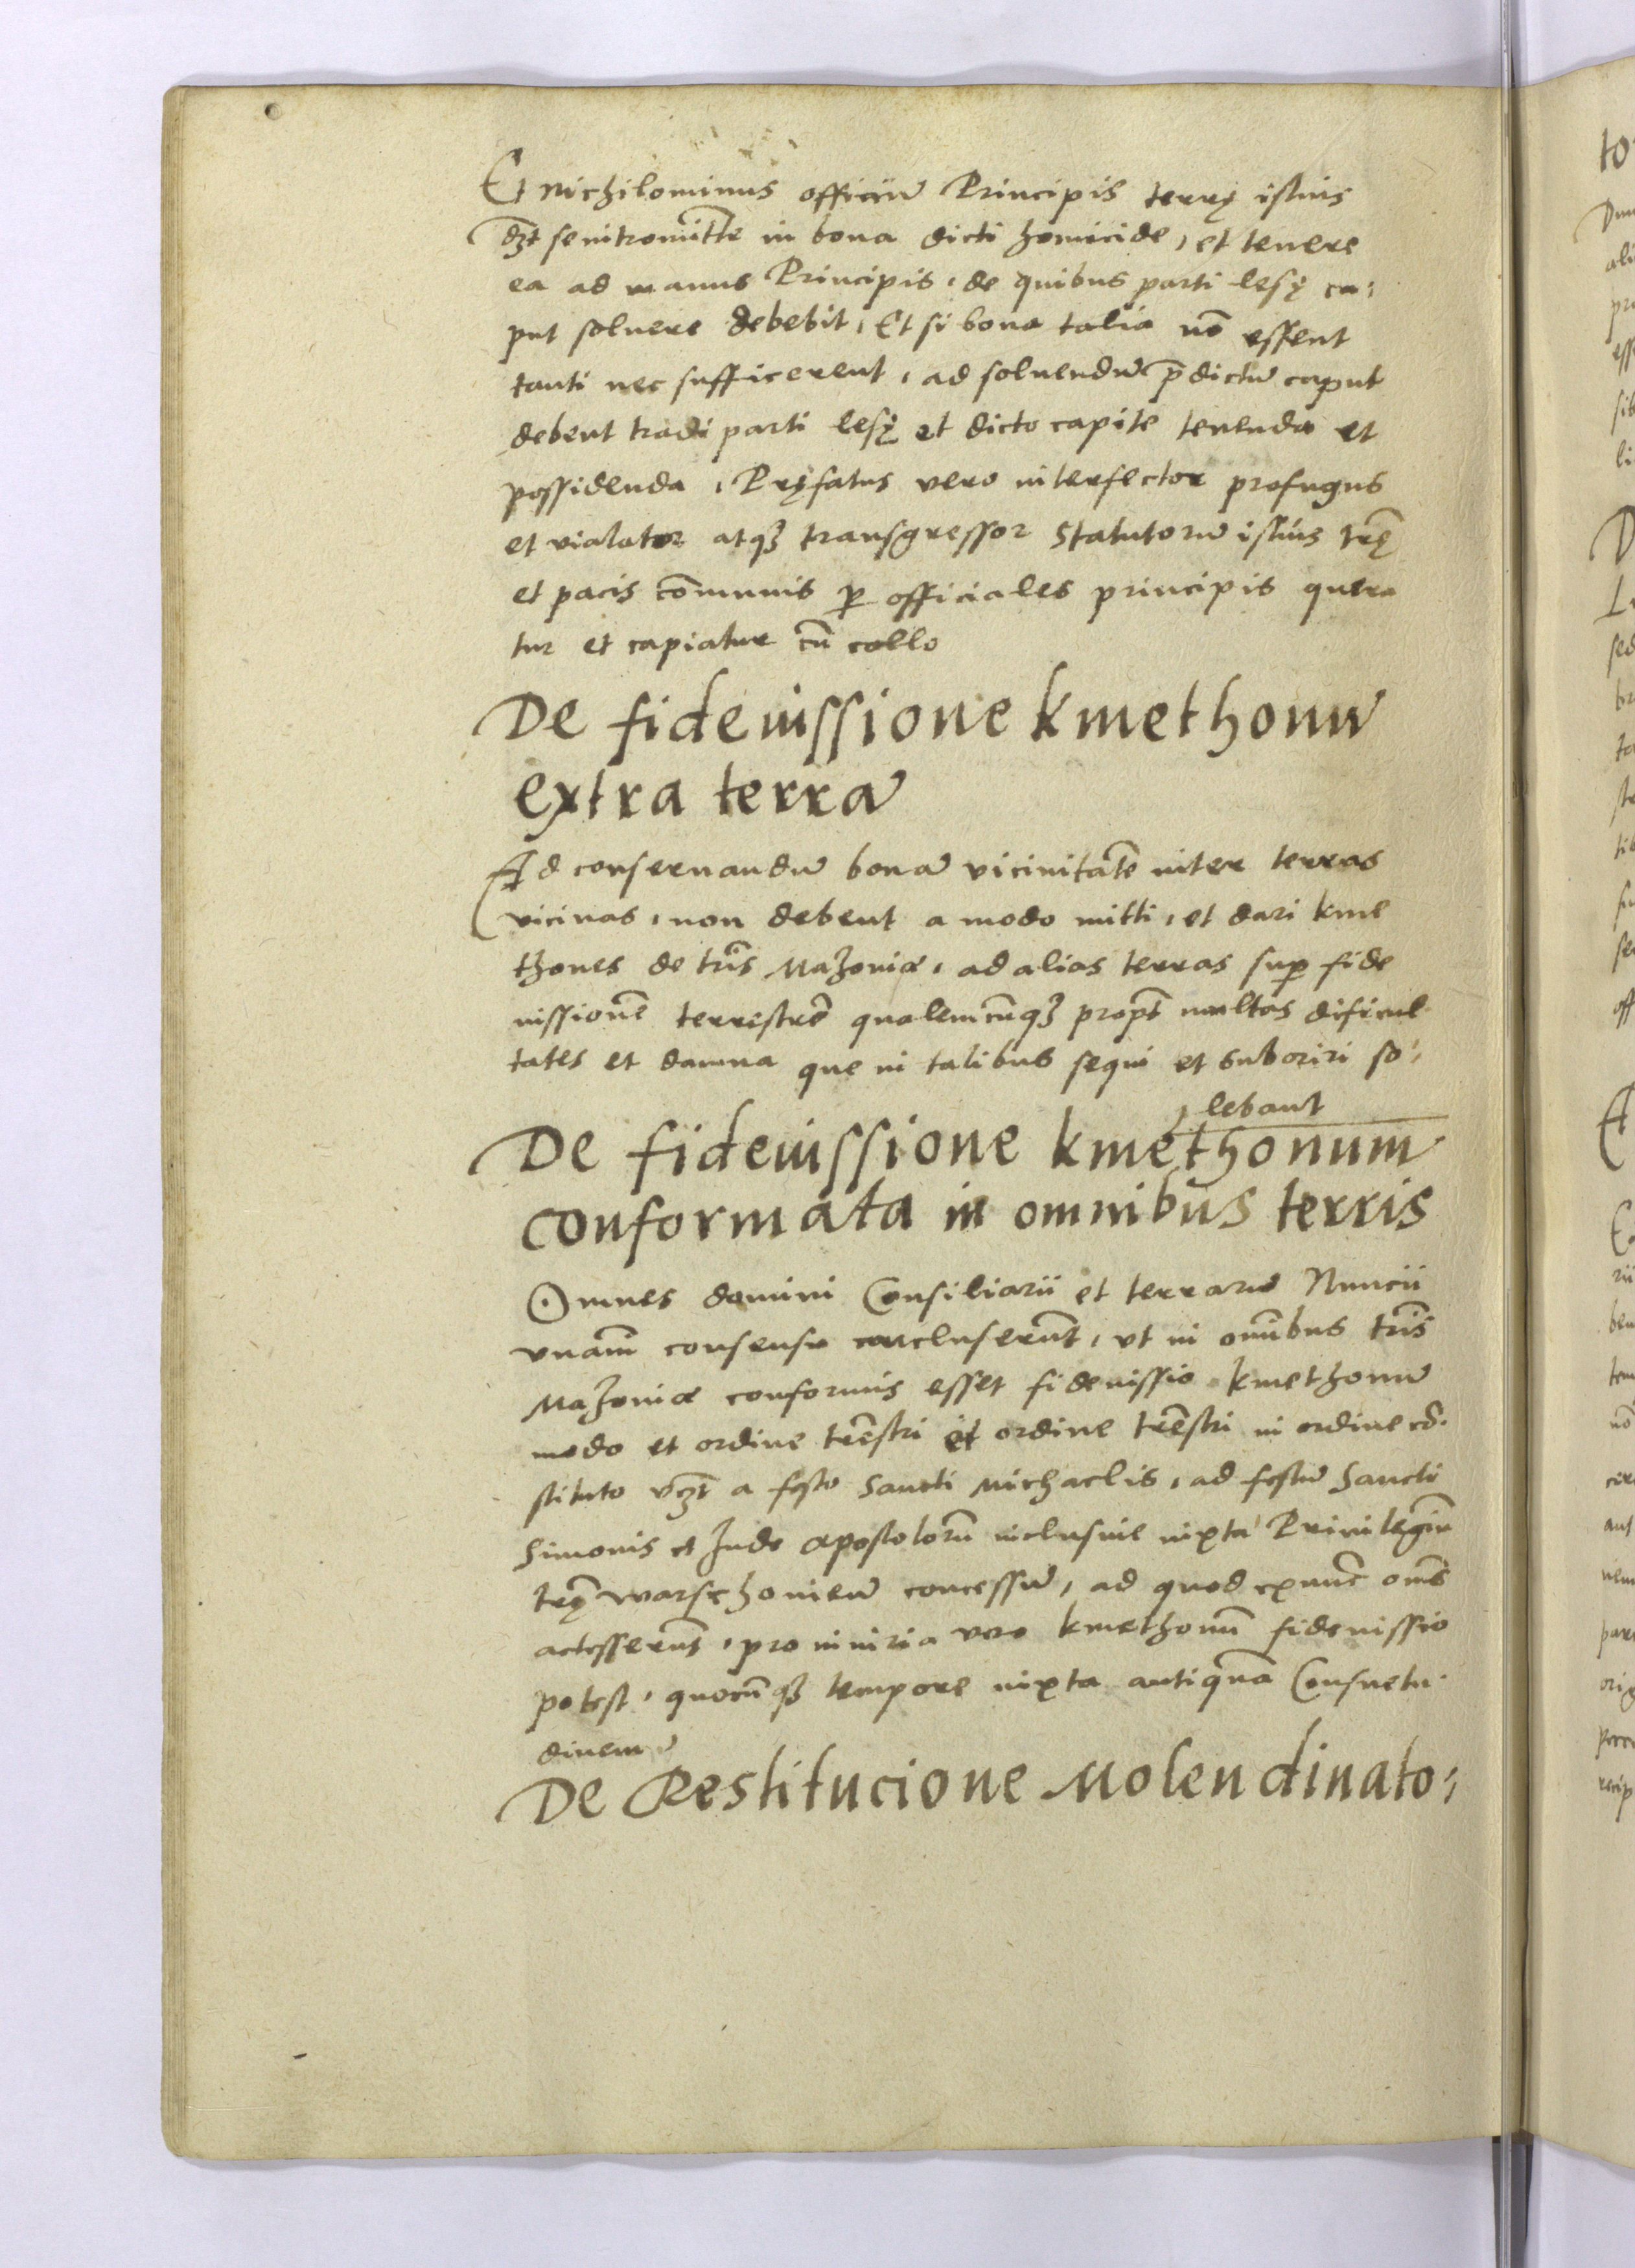 Et nichilominus officiũ Principis terrę istius
dꝫt se intromitte͂ in bona dicti homicide, et tenere
ea ad manus Principis, de quibus parti lesę ca,
put soluere debebit, Et si bona talia nõ essent
tanti nec sufficerent, ad soluendũ p̃dictũ caput
debent tradi parti lesę et dicto capite tenenda et
possidenda, Pręfatus vero interfector profugus
et violator atqꝫ transgressor Statutorũ istius tr̃ę
et pacis cõmunis ꝑ officiales principis quera
tur et capiatur cũ collo
De fideiussione kmethonũ
extra terrã
Ad conseruandũ bonã vicinitatẽ inter terras
vicinas, non debent a modo mitti, et dari kme
thones de tr̃is Mazoniæ, ad alias terras suꝑ fide
iussionẽ terrestrẽ qualemcũqꝫ propt̃ multas dificul
tates et damna que in talibus sequi et suboriri so,
lebant
De fideiussione kmethonum
conformata in omnibus terris
Omnes domini Consiliarii et terrarũ Nuncii
vnañi consensu concluserũt, vt in om̃ibus tr̃is
Mazoniæ conformis esset fideiussio kmethonũ
modo et ordine tr̃estri et ordine tr̃estri in ordine cõ.
stituto vꝫt a festo Sancti Michaelis, ad festũ Sancti
Simonis et Jude Apostolorũ inclusiue iuxta Priuilegiũ
tr̃ę warschouieñ concessũ, ad quod exnũc om̃s
accesserũt, pro iniuria vero kmethonũ fideiussio
potest, quocũqꝫ tempore iuxta antiquã Consuetu.
dinem
De Restitucione Molendinato,